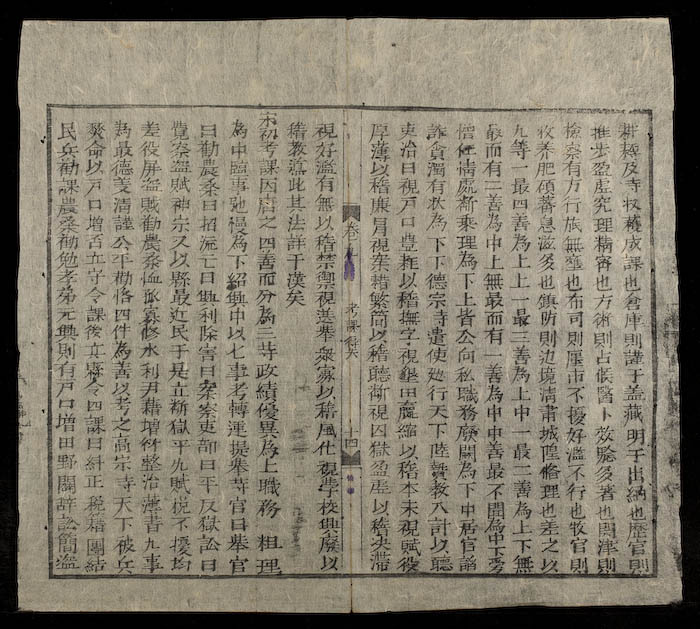 耕耨及寺收穫成課也倉庫則謹于盖藏明于出納也歷官則
推步盈虚究理精宻也方術則占候醫卜效驗多著也関津則
檢察有方行旅無壅也市司則廛市不擾奸濫不行也牧官則
牧养肥碩蕃息滋多也鎮防則边境清肅城隍脩理也差之以
九等一最四善為上上一最三善為上中一最二善為上下無
最而有二善為中上無最而有一善為中中善最不聞為中下愛
憎任情處断乗理為下上皆公向私職務廢闕為下中居官謟
詐貪濁有状為下下德宗寺遣使廵行天下陸贄教八計以聽
吏治曰視户口豊耗以稽撫字視墾田羸縮以稽本末視賦役
厚薄以稽廉冐視案籍繁简以稽聽断視囚獄盈虚以稽决滞
卷 考課 十四
視奸濫有無以稽禁禦視選舉衆寡以稽風化視學校興廢以
稽教導此其法詳于漢矣
宋初考課因唐之四善而分為三等政績優異為上職務粗理
為中臨事弛慢為下紹興中以七事考轉運提舉等官曰舉官
曰勸農桑曰招流亡曰興利除害曰案察吏部曰平反獄訟曰
覺察盗賊神宗又以縣最近民于是立断獄平允賦税不擾均
差役屏盗賊勸農桑恤飢窮修水利户籍增衍整治簿書九事
為最德義清謹公平勤恪四件為善以考之高宗寺天下被兵
爰命以户口增否立守令課後立縣令四課曰糾正税籍團結
民兵勸課農桑勸勉孝弟元興則有户口增田野闢辞訟簡盗